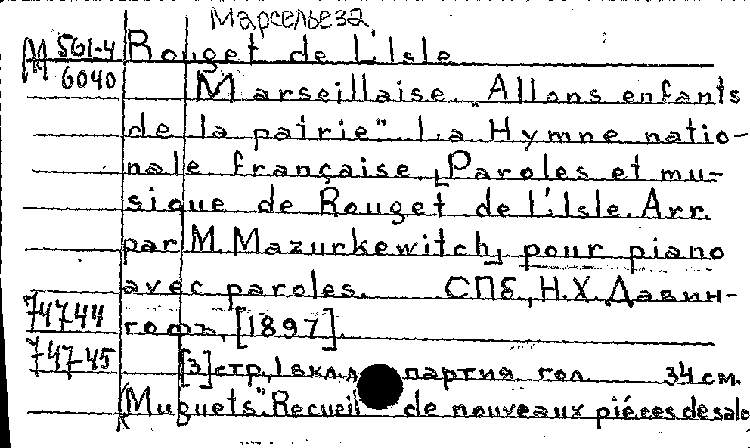 Марсельеза
М 561-4 Rouget de L'Isle
6040 Marseillaise. "Allons enfants
de la patrie". La Hymne natio-
nale française. [Paroles et mu-
sique de Rouget de l'Isle. Arr.
par M. Mazurkewitch] pour piano
avec paroles. СПб, Н.Х. Давин-
74744 гофъ, [1897].
747-45 [3] стр, 1 вкл. л партия гол. 34 см.
(Muguets". Recueil de nouveaux piéces de salo